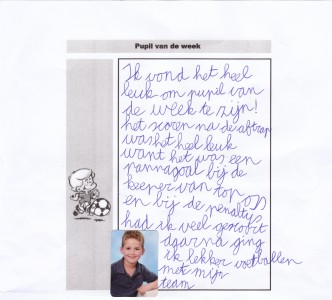 Pupil van de week
Ik vond het heel
leuk om pupil van
de week te zijn!
het scoren na de aftrap
was het heel leuk
want het was een
pannagoal bij de
keeper van top
oss
en bij de penaltys
had ik veel gescoort
daarna ging
ik lekker voetballen
met mijn
team